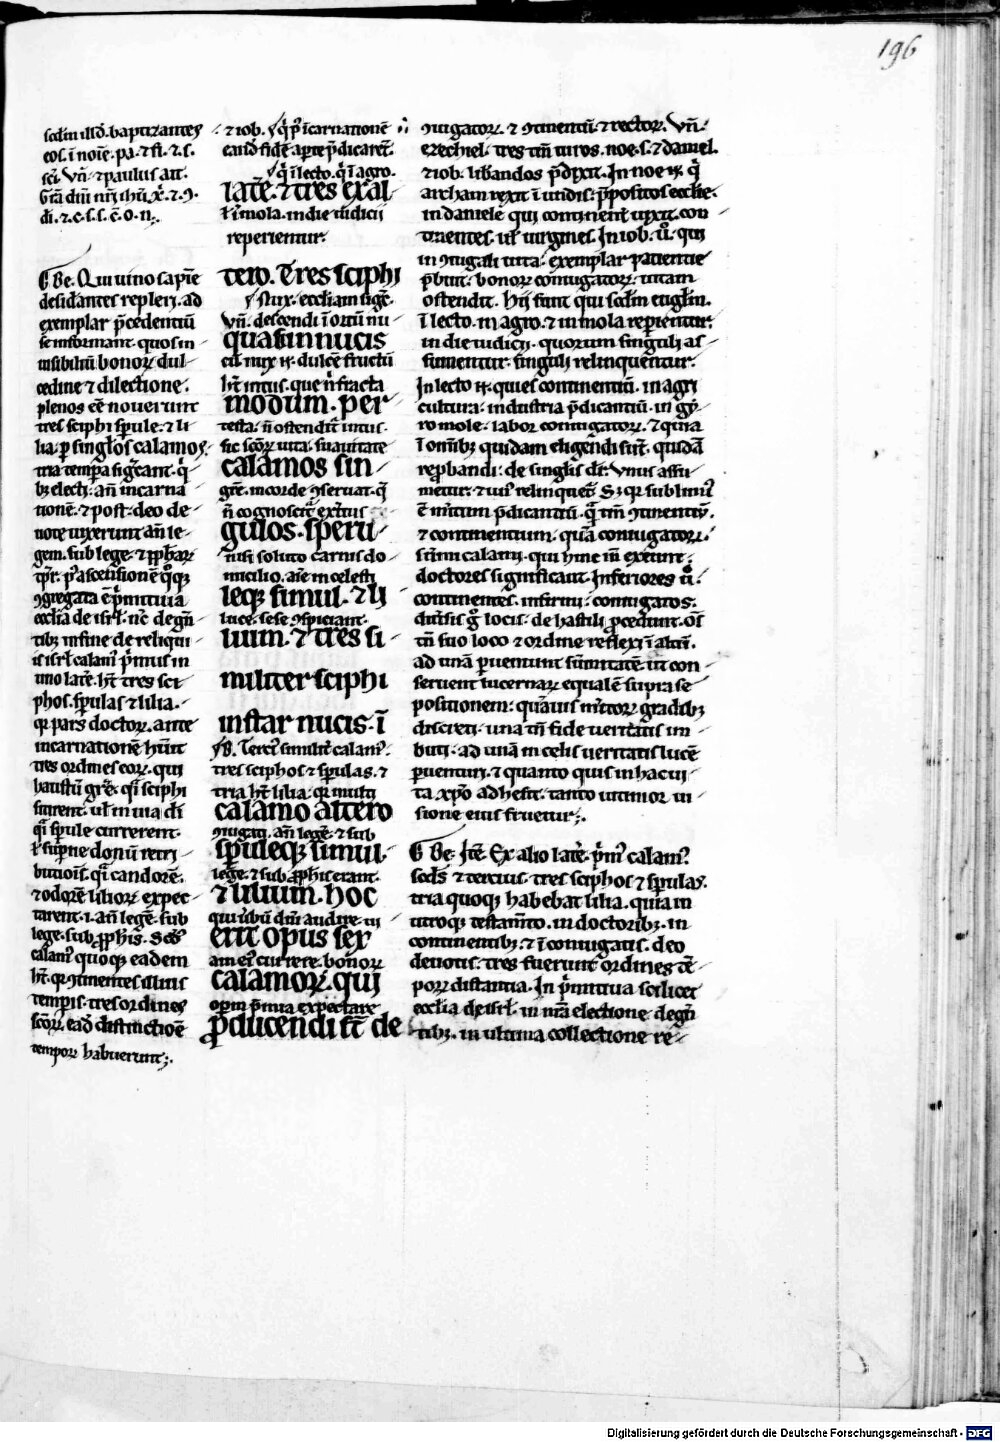 196
scđm illđ. baptizantes
eos. ī noīe. pa. ⁊ fi. ⁊ s.
sc̄i. Vn̄. ⁊ paulus ait.
Gr̄a dn̄i nr̄i ih̄u. x̄. ⁊ ꝯ.
di. ⁊ c. s. s. c̄. o. n.
Be. Qui uino sapīe
desid̄antes repleri. ad
exemplar p̄cedentiū
se informant. quos in
uisibiliū bonoꝝ dul
cedine ⁊ dilectione.
plenos eē nouerunt
tres sciphi sp̄ule. ⁊ li
lia. ꝑ singl̓os calamos.
tria temp̄a sig̓cant. q̄
bꝫ electi. an̄ incarna
tionē. ⁊ post. deo de
uote uixerunt. an̄ le
gem. sub lege. ⁊ ꝓph̄aꝝ
ꝯgregata ē p̓mitiua
eccl̓ia de isr̄l. nc̄ de gn̄
tibꝫ. in fine de reliqui
is isr̄l. calam̓ p̓mus in
uno lat̓e. h̄t tres sci
phos. sp̄ulas ⁊ lilia.
qꝛ pars doctoꝝ. ante
incarnationē hn̄t
tres ordines eoꝝ. qui
haustū gr̄e. q̄i sciphi
sitirent. ul̓ in uia di
q̄i sp̄ule currerent.
ł sup̄ne donū retri
butiois. q̄i candorē.
⁊ odorē lilioꝝ expec
tarent. i. an̄ legē. sub
lege. sub ꝓph̄is. Scđs
calam̓ quoqꝫ eadem
h̄t. qꝛ ꝯtinentes illius
temp̄is. tres ordines
sc̄oꝝ. eađ distinctiōe
tempoꝝ habuerunt;.
⁊ iob. ⁊ q̓ p̓ īcarnationē
eand̄ fidē aꝑte p̄dicaret.
⁊ q̓ ī lecto. q̓ ī agro.
lat̓e. ⁊ tres ex al
ł ī mola. in die iudicii
reperientur.
tero. Tres sciphi
stix. eccl̓iam sig̓t.
Vn̄. descendi ī ortū nu
quasi in nucis
cū. nux .n̄. dulcē fructū
h̄t intus. que n̄ fracta
modum. per
testa. n̄ ostendit intus.
sic sc̄oꝝ uita. suauitatē
calamos sin
gr̄e. in corde ꝯseruat. q̄
n̄ cognoscit̓ exteius
gulos. speru
nisi soluto carnis do
micilio. aīe in celesti
leqꝫ simul. ⁊ li
luce. sese ꝯspiciant.
lium. ⁊ tres si
militer sciphi
instar nucis. ī
Terci̓ similit̓ calam̓.
tres sciphos ⁊ sp̄ulas. ⁊
tria h̄t lilia. qꝛ multi
calamo altero
ꝯiugati. an̄ legē. ⁊ sub
sp̄uleqꝫ simul.
lege. ⁊ sub ꝓph̄is erant.
⁊ lilium. hoc
qui ub̄ū dn̄i audire. ui
erit opus sex
am ei̓ currere. bonoꝝ
calamoꝝ. qui
opm p̄mia expectare
ꝓducendi st̄ de
ꝯiugatoꝝ. ⁊ ꝯtinentiū. ⁊ rectoꝝ. Vn̄.
ezechiel. tres tm̄ uiros. noe. s. ⁊ daniel.
⁊ iob. lib̄andos p̄dixit. In noe .n̄. q̓
archam rexit ī undis. p̄positos eccl̓ie.
in daniele qui continent̓ uixit. con
tinentes. ul̓ uirgines. In iob. ū. qui
in ꝯiugali uita. exemplar patientie
p̄buit. bonoꝝ coniugatoꝝ. uitam
ostendit. Hij sunt qui scđm euḡlm.
ī lecto. in agro. ⁊ in mola rep̄ientur.
in die iudicij. quorum singuli as
sumentur. singuli relinquentur.
In lecto .n̄. quies continentiū. in agri
cultura. industria p̄dicantiū. in gy
ro mole. labor coniugatoꝝ. ⁊ quia
ī omībꝫ quidam eligendi sūt. quidā
rep̄bandi. de singl̓is dr̄. Vnus assu
metur. ⁊ un̓ relinquet̓. Sꝫ qꝛ sublimi̓
ē m̓itum p̄dicantiū. q̄ tm̄ ꝯtinentiū.
⁊ continentium. quā coniugatoꝝ.
sūmi calami. qui hinc in̄ exeunt.
doctores significant. Inferiores ū.
continentes. infimi. coniugatos.
diūsis g̓ locis. de hastili ꝓcedunt. oēs
tn̄ suo loco ⁊ ordine reflexi ī altū.
ad unā ꝑueniunt sūmitatē. ut con
seruent lucernaꝝ equalē supra se
positionem. quāuis m̓itoꝝ gradibꝫ
discreti. una tn̄ fide ueritatis im
buti. ad unā in celis ueritatis lucē
ꝑuenturi. ⁊ quanto quis in hac ui
ta xp̄o adhesit. tanto uicinior ui
sione eius fruetur;.
Be. Itē. Ex alio lat̓e. p̓m̓ calam̓.
scđs ⁊ tercius. tres sciphos ⁊ sp̄ulas.
tria quoqꝫ habebat lilia. quia in
utroqꝫ testam̄to. in doctoribꝫ. in
continentibꝫ. ⁊ ī coniugatis. deo
deuotis. tres fuerunt ordines tē
poꝝ distantia. In p̓mitiua scilicet
eccl̓ia de isr̄l. in nr̄a electione de gn̄
tibꝫ. in ultima collectione re
Digitalisierung gefördert durch die Deutsche Forschungsgemeinschaft -
DFG